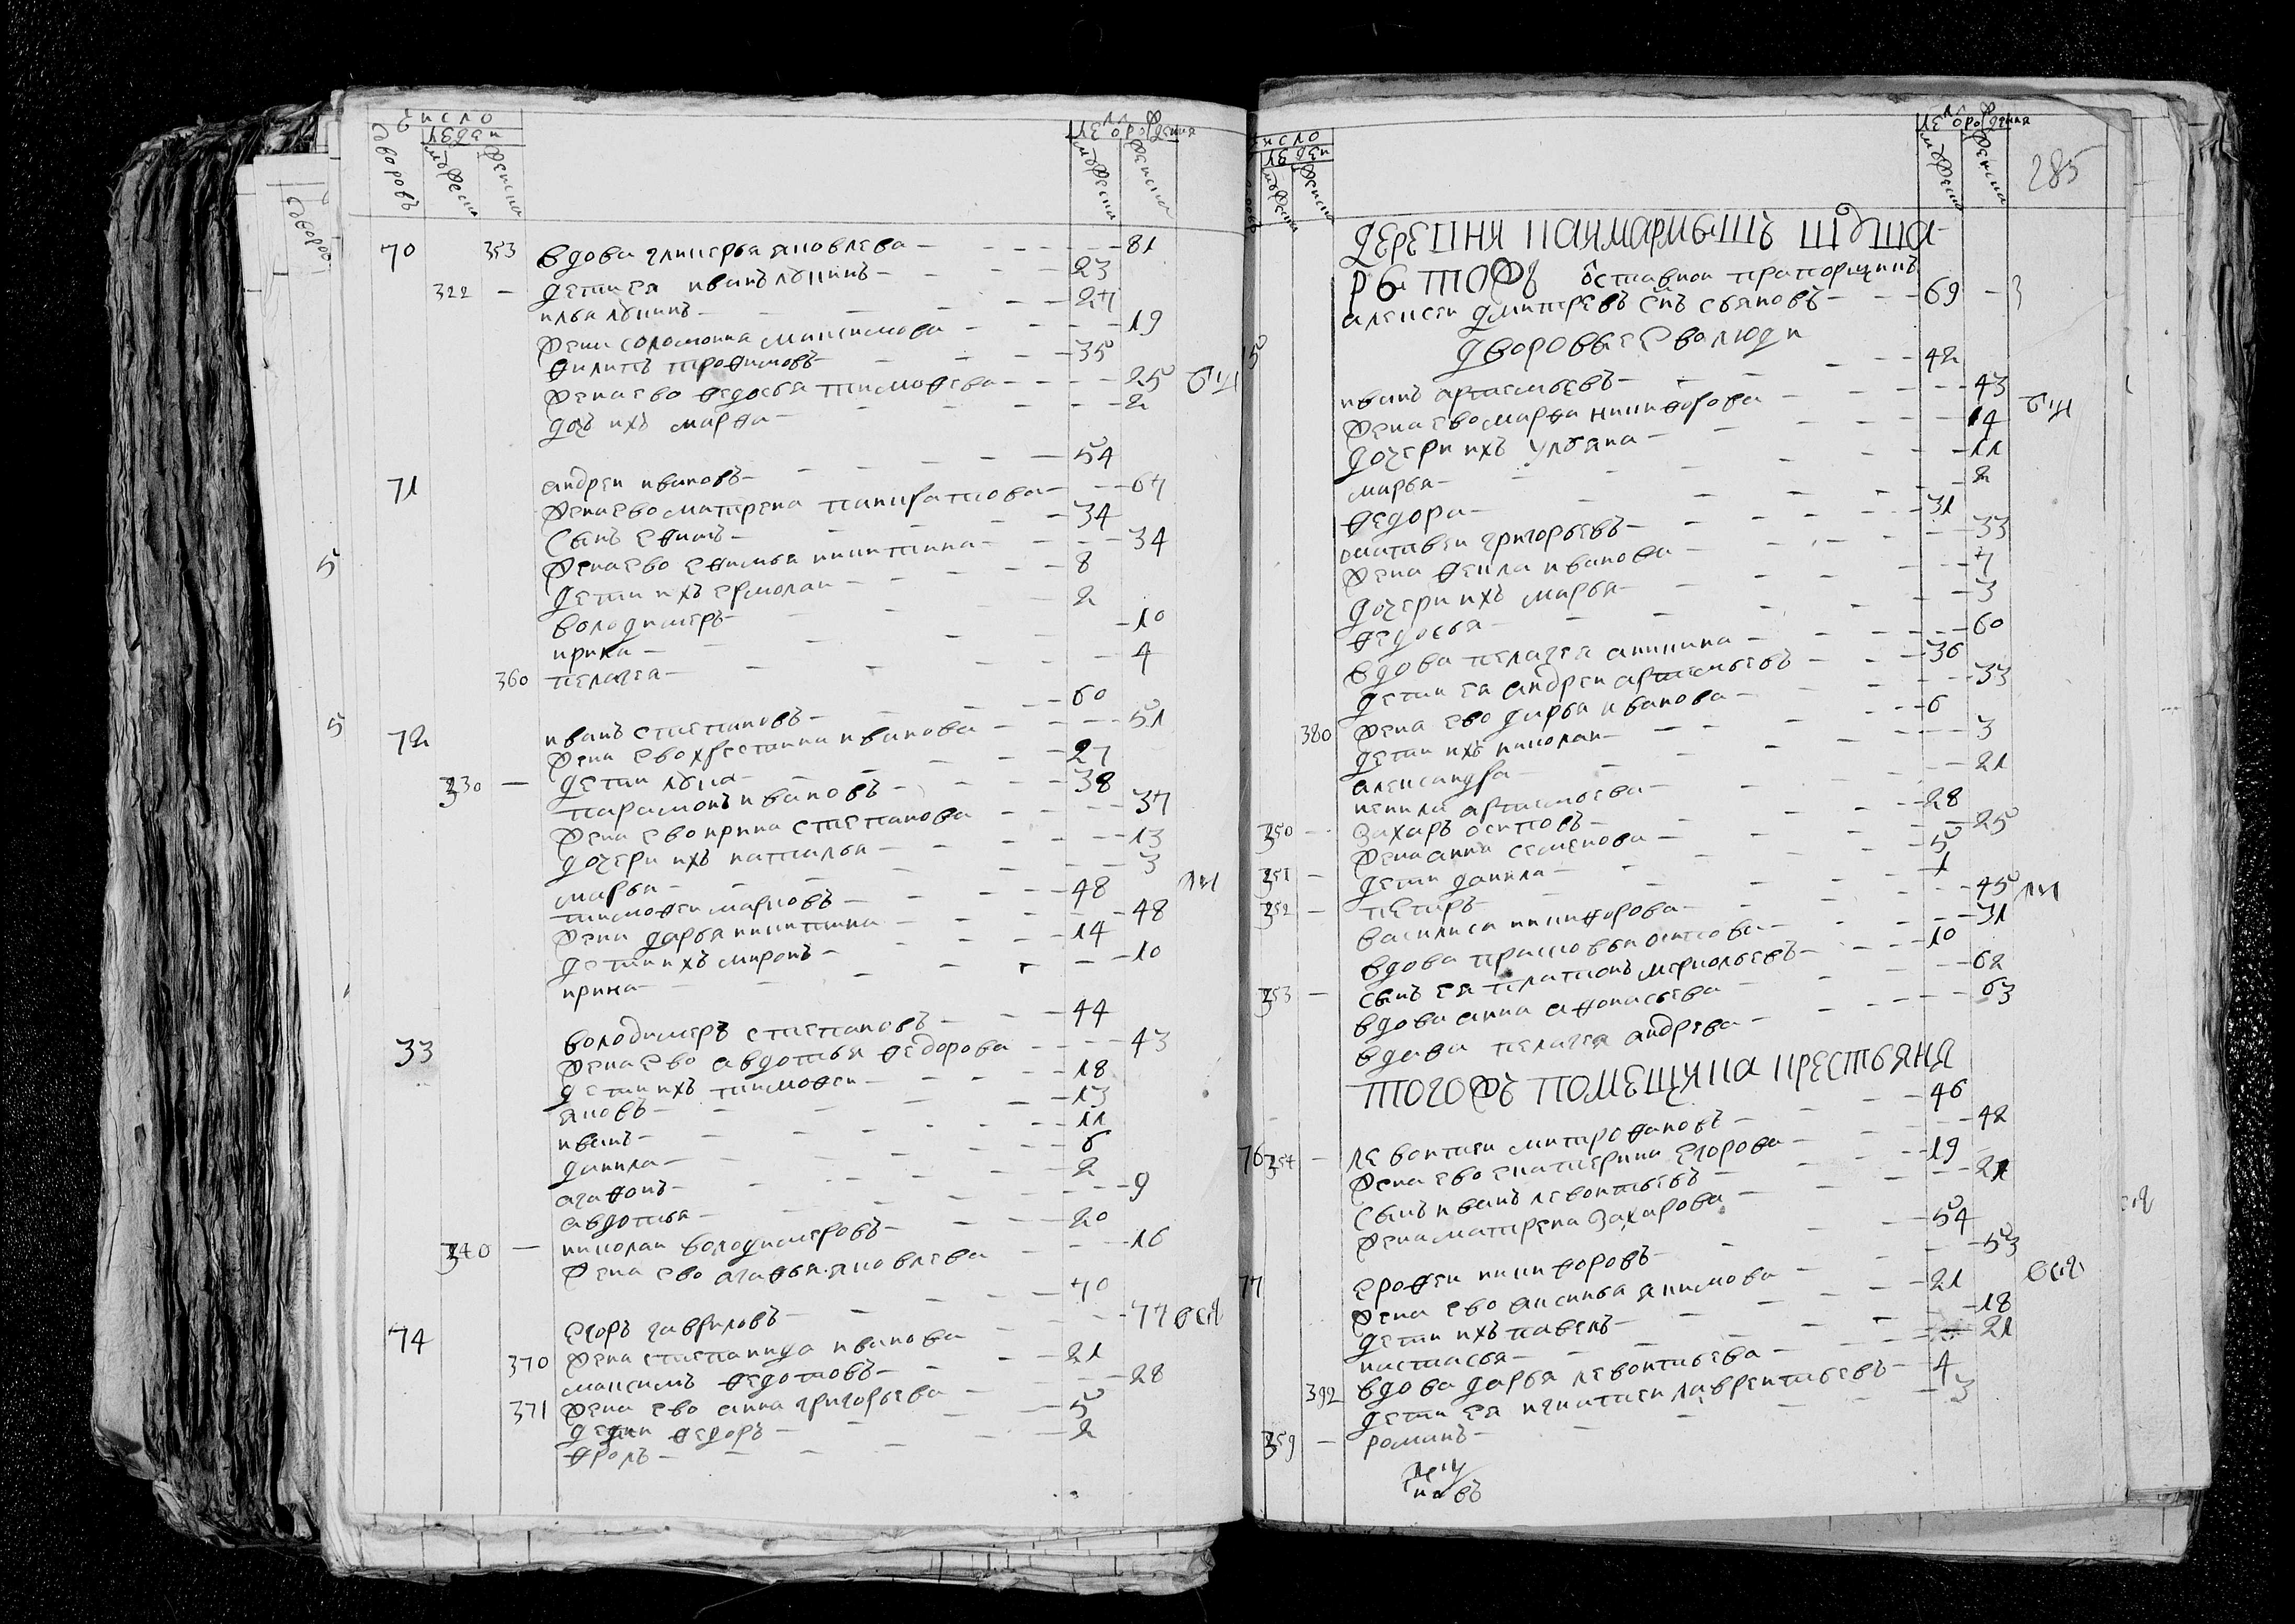 число
людей
дворовъ
мужеска
женска
лѣ отрождения
мужеска
женска
70 353 вдова гликерья яковлева 81
322 дети ея иванъ лукинъ 23
илья лукинъ 27
жена соломонида максимова 19
филипъ трофимовъ 35
жена ево федосья тимофева 25 бы
дочь ихъ марфа 2
71 андреи ивановъ 54
жена ево матрена панкратова 67
сынъ ефимъ 34
жена ево ефимья никитина 34
дети ихъ ермолаи 8
володимеръ 2
ирина 10
360 пелагея 4
72 иванъ степановъ 60
жена ево хрестина иванова 51
330 дети лука 27
парамонъ ивановъ 38
жена ево ирина степанова 37
дочери ихъ наталья 13
марья 3
тимофеи марковъ 48
жена дарья никитина 48
дети ихъ миронъ 14
ирина 10
33 володимеръ степановъ 44
жена ево авдотья федорова 43
дети ихъ тимофеи 18
яковъ 13
иванъ 11
данила 6
агафонъ 2
авдотья 9
340 николаи володимеровъ 20
жена ево агафья яковлева 16
74 егоръ гавриловъ 70
370 жена степанида иванова 77
максимъ федотовъ 21
371 жена ево анна григорьева 28
дети федоръ 5
фролъ 2
число
людей
мужеска
женска
лѣ отрождения
мужеска
женска
285
деревни
тожъ отставнои прапорщикъ
алексеи дмитревъ снъ 69
дворовые ево люди
иванъ артемьевъ 42
жена ево марфа никифорова 43
дочери ихъ ульяна 14
марья 11
федора 2
матвеи григорьевъ 31
жена фекла иванова 33
дочери ихъ марья 7
федосья 3
вдова пелагея аникина 60
дети ея андреи артемьевъ 36
жена ево дарья иванова 33
380 дети ихъ николаи 6
александра 3
артемьева 21
350 захаръ осиповъ 28
жена анна семенова 25
351 дети данила 5
352 петръ 1
василиса никифорова 45
вдова прасковья осипова 31
353 сынъ ея платонъ 10
вдова анна афонасьева 62
вдова пелагея андрева 63
тогожъ помещика крестьяня
76 354 левонтеи митрофановъ 46
жена ево екатерина егорова 42
сынъ иванъ левонтьевъ 19
жена матрена захарова 21
77 ерофеи никифоровъ 54
жена ево аксинья якимова 53
дети ихъ павелъ 21
настасья 18
вдова дарья левонтьева 21
392 дети ея игнатеи лаврентьевъ 4
359 романъ 3